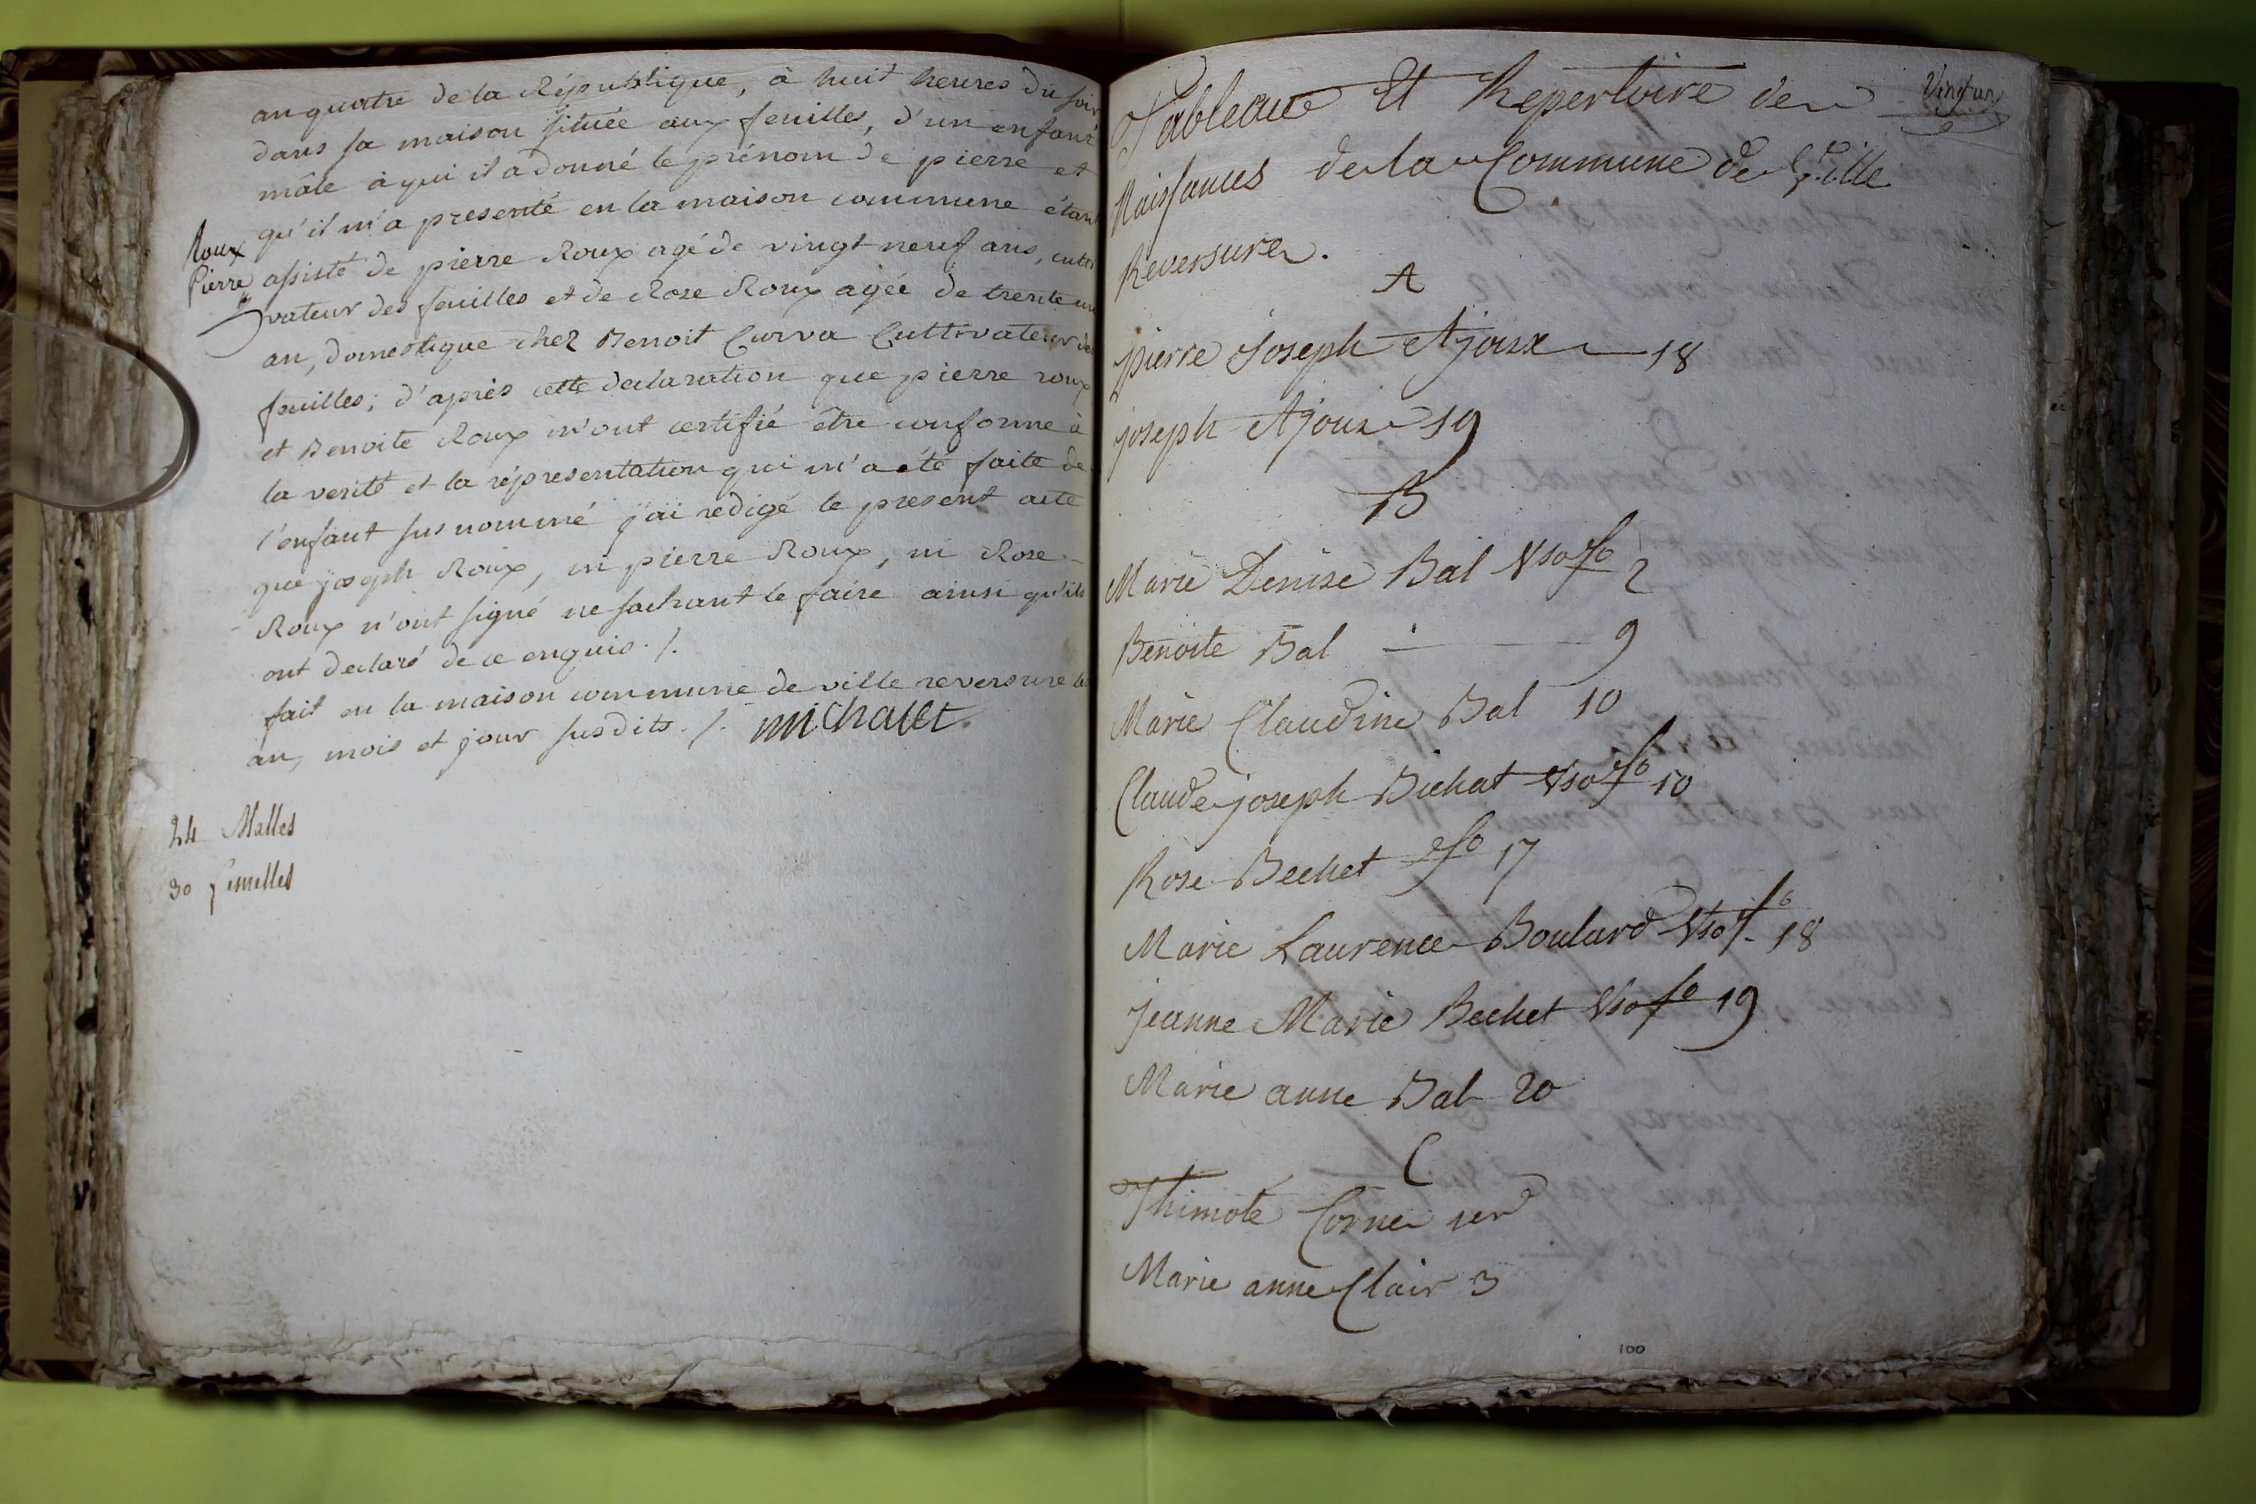 an quatre de la République, à huit heures du soir
dans sa maison située aux feuilles, d'un enfant
mâle à qui il a donné le prénom de pierre et
qu'il m'a presenté en la maison commune étant
Roux
Pierre
assisté de pierre Roux agé de vingt neuf ans, culti
vateur des feuilles et de Rose Roux agée de trente un
an, domestique chez Benoit Curva Cultivateur des
feuilles; d'après cette declaration que pierre roux
et Benoite Roux m'ont certifié être conforme à
la verité et la répresentation qui m'a été faite de
l'enfant sus nommé j'ai redigé le present acte
que joseph Roux, ni pierre Roux, ni Rose
Roux n'ont signé ne sachant le faire ainsi qu'ils
ont declaré de ce enquis ./.
fait en la maison commune de ville reversure les
an, mois et jour susdits ./. michallet
24 Malles
30 femelles
Vingt un
Tableau Et Repertoire des
Naissances de la Commune de Ville
Reversure.
A
pierre joseph Ajoux 18
joseph Ajoux 19
B
Marie Denise Bal Vso fo 2
Benoite Bal 9
Marie Claudine Bal 10
Claude joseph Bichat Vso fo 10
Rose Bechet fo 17
Marie Laurence Boulard Vso fo 18
jeanne Marie Bechet Vso fo 19
Marie anne Bal 20
C
Thimoté Corne 1er
Marie anne Clair 3
100